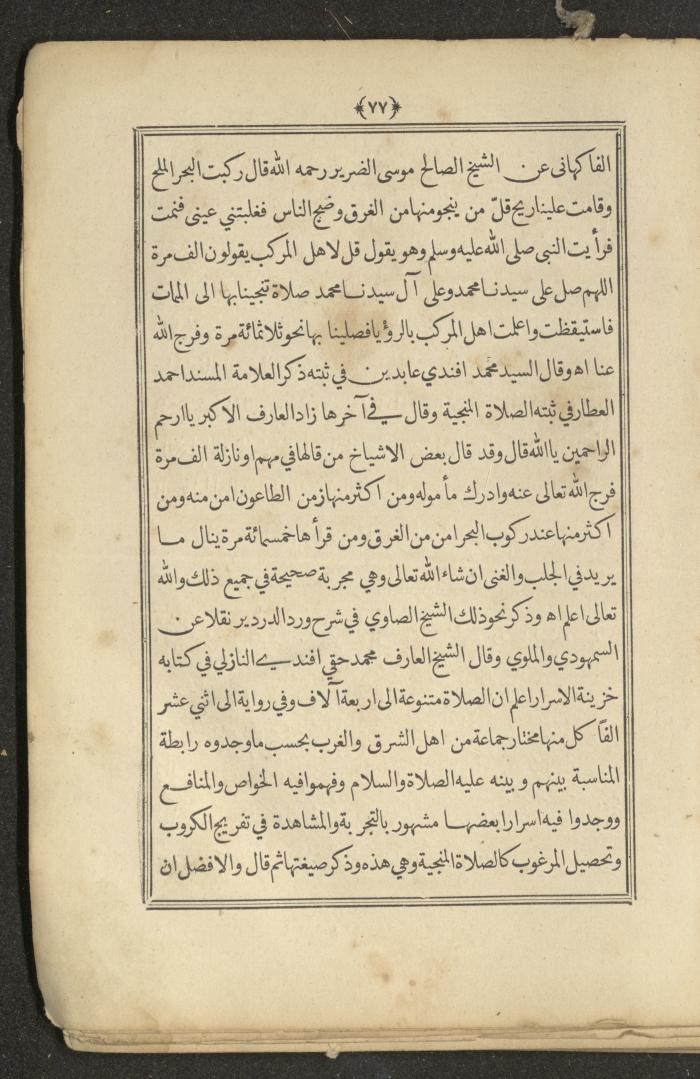 ﴿٧٧﴾
الفاكهانى عن الشيخ الصالح موسى الضرير رحمه الله قال ركبت البحر الملح
وقامت علينا ريح قلّ من ينجو منها من الغرق وضج الناس فغلبتني عينى فنمت
فرأيت النبى صلى الله عليه وسلم وهو يقول قل لاهل المركب يقولون الف مرة
اللهم صل على سيدنا محمد وعلى آل سيدنا محمد صلاة تنجينا بها الى الممات
فاستيقظت واعلمت اهل المركب بالرؤيا فصلينا بها نحو ثلاثمائة مرة وفرج الله
عنا اه وقال السيد محمد افندي عابدين في ثبته ذكر العلامة المسند احمد
العطار في ثبته الصلاة المنجية وقال في آخرها زاد العارف الاكبر يا ارحم
الراحمين يا الله قال وقد قال بعض الاشياخ من قالها في مهم او نازلة الف مرة
فرج الله تعالى عنه وادرك مأموله ومن اكثر منها زمن الطاعون امن منه ومن
اكثر منها عند ركوب البحر امن من الغرق ومن قرأها خمسمائة مرة ينال ما
يريد في الجلب والغنى ان شاء الله تعالى وهي مجربة صحيحة في جميع ذلك والله
تعالى اعلم اه وذكر نحو ذلك الشيخ الصاوي في شرح ورد الدردير نقلا عن
السمهودي والملوي وقال الشيخ العارف محمد حقي افندي النازلي في كتابه
خزينة الاسرار اعلم ان الصلاة متنوعة الى اربعة آلاف وفي رواية الى اثني عشر
الفاً كل منها مختار جماعة من اهل الشرق والغرب بحسب ما وجدوه رابطة
المناسبة بينهم وبينه عليه الصلاة والسلام وفهموا فيه الخواص والمنافع
ووجدوا فيه اسرارا بعضها مشهور بالتجربة والمشاهدة في تفريج الكروب
وتحصيل المرغوب كالصلاة المنجية وهي هذه وذكر صيغتها ثم قال والافضل ان